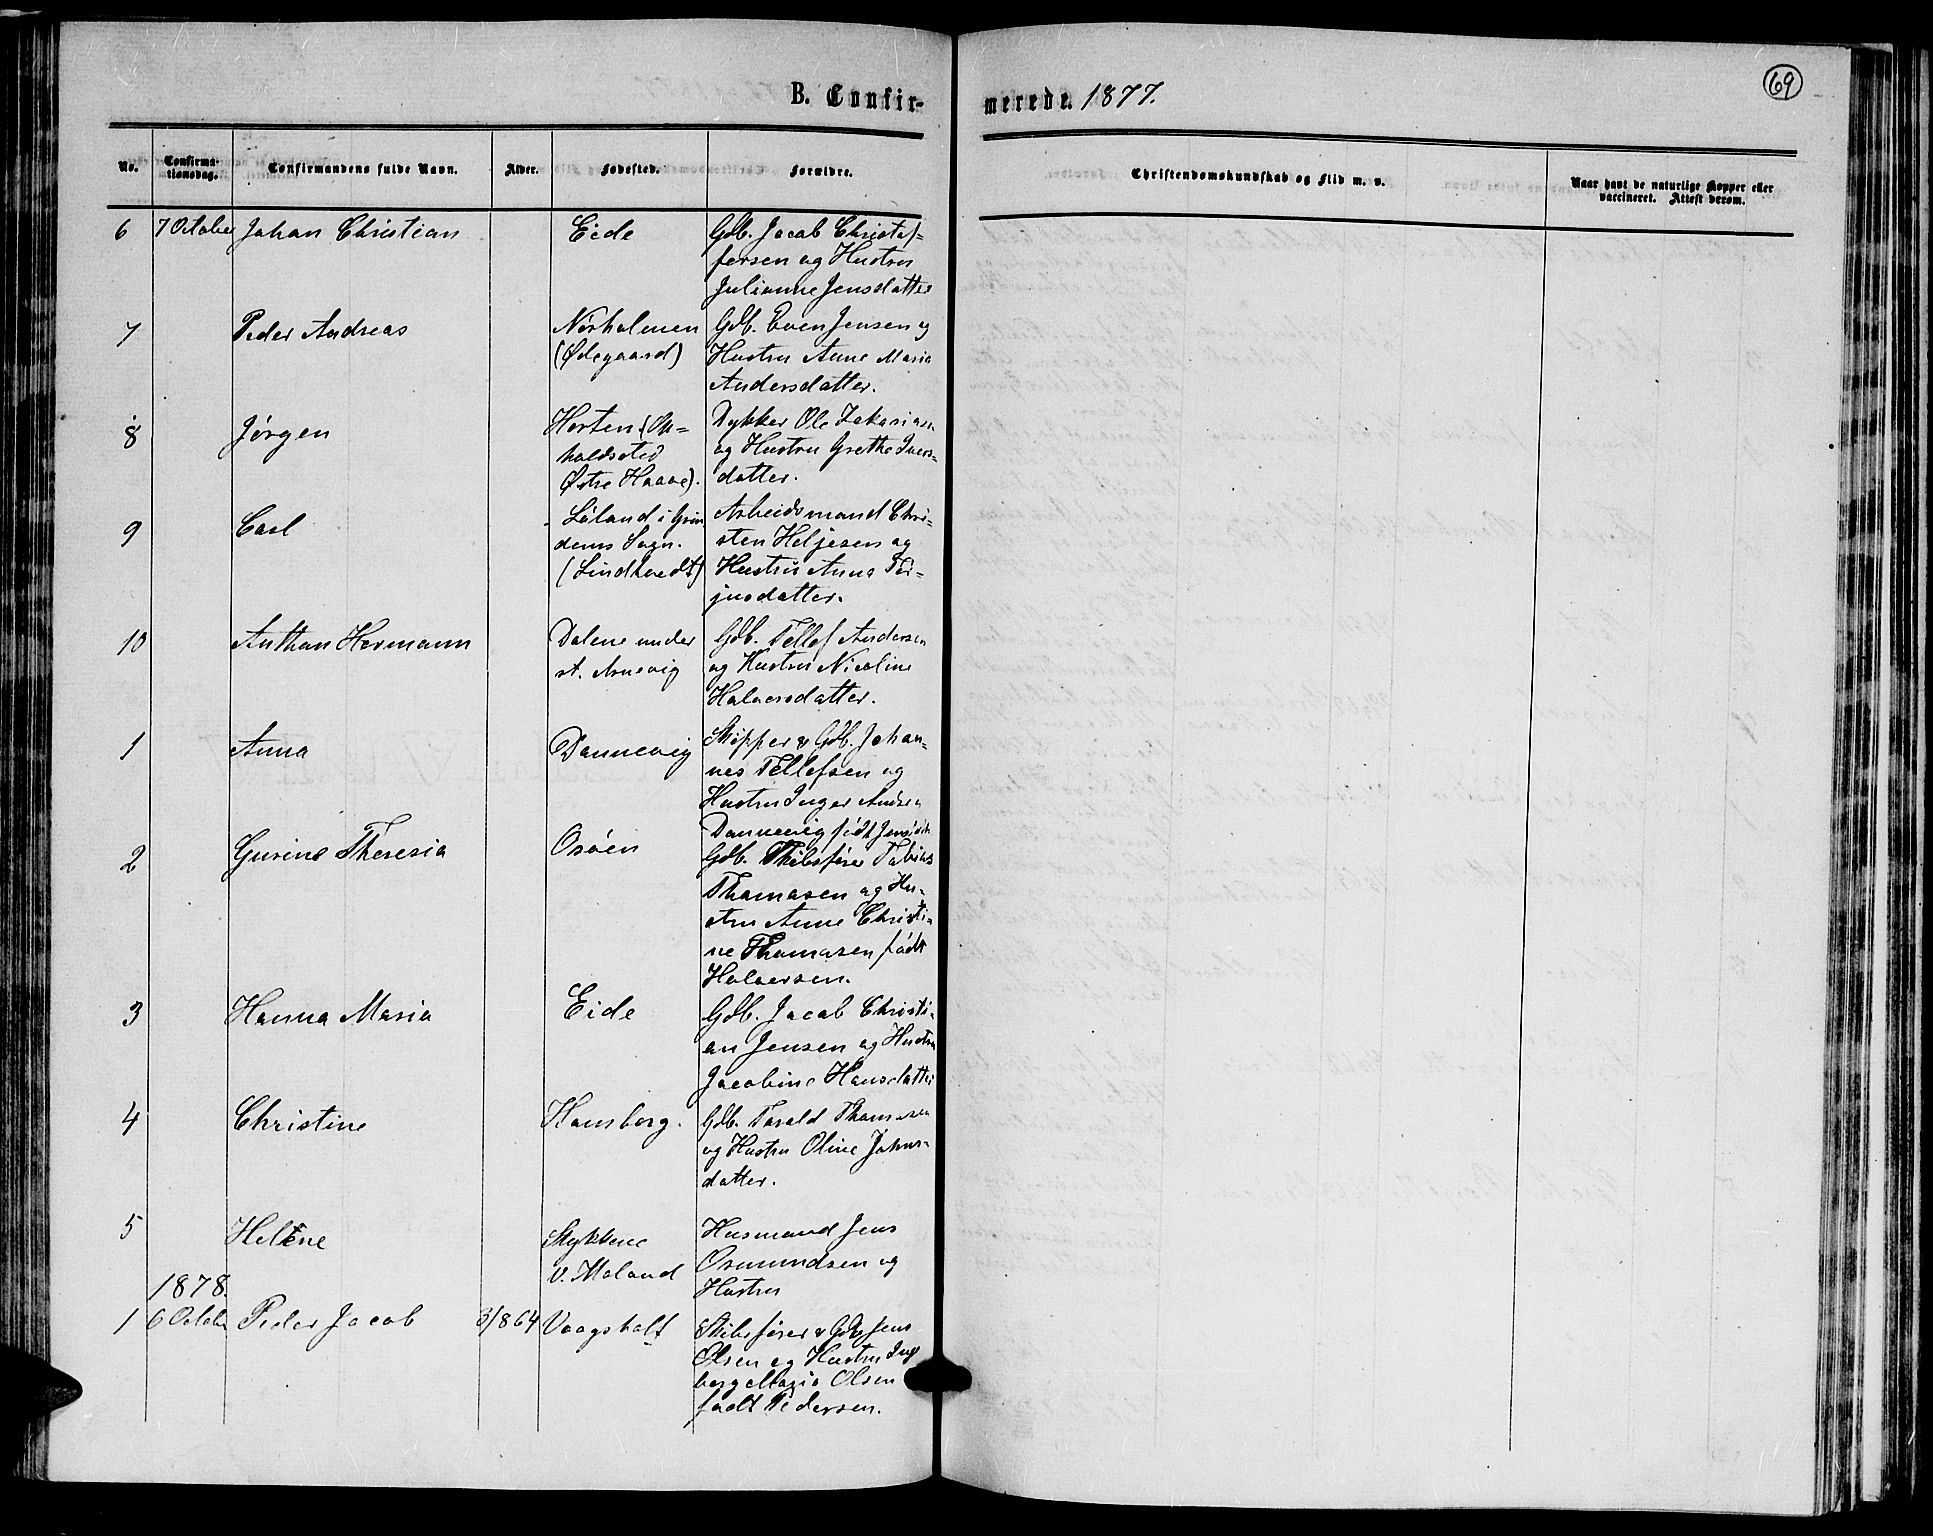 69
B. Confirmerede. 1877.
No.
Confirmationsdag.
Confirmandens fulde Navn.
Alder.
Fødested.
Forældre.
Christendomskundskab og Flid m. v.
Naar havt de naturlige Kopper eller
vaccineret. Attest derom.
6 7 October Johan Christian Eide Gdb. Jacob Christof=
fersen og Hustru
Julianne Jensdatter
7 Peder Andreas Nørholmen Gdb. Even Jensen og
(Ødegaard) Hustru Anne Maria
Andersdatter.
8 Jørgen Horten (Op=
holdssted
Østre Haave).
Dykker Ole Zakariasen
og Hustru Grethe Ivers=
datter.
9 Carl
dems Sogn.
(Lindtvedt)
Arbeidsmand Chri=
sten Helgesen og
Hustru Anna Ter=
jusdatter.
10 Anthon Hermann Dalene under
st. Arnevig
Gdb. Tellef Andersen
og Hustru Nicoline
Halvorsdatter.
1 Anna Dannevig Skipper & Gdb. Johan=
nes Tellefsen og
Hustru Inger Andrea
Dannevig født
2 Gurine Theresia Osøen Gdb. Skibsfører Tobias
Thomasen og Hu=
stru Anne Christi=
ne Thomasen født
Halvorsen.
3 Hanna Maria Eide Gdb. Jacob Christi=
an Jensen og Hustru
Jacobine Hansdatter
4 Christine Homborg. Gdb. Tarald Thomasen
og Hustru Oline Johns=
datter.
5 Helene Stykkene
V. Moland
Husmand Jens
Osmundsen og
Hustru
1878.
1 6 October Peder Jacob 3/8 64 Vaagsholt Skibsfører & Gdb Jens
Olsen og Hustru Inge
borg Maria Olsen
født Pedersen.